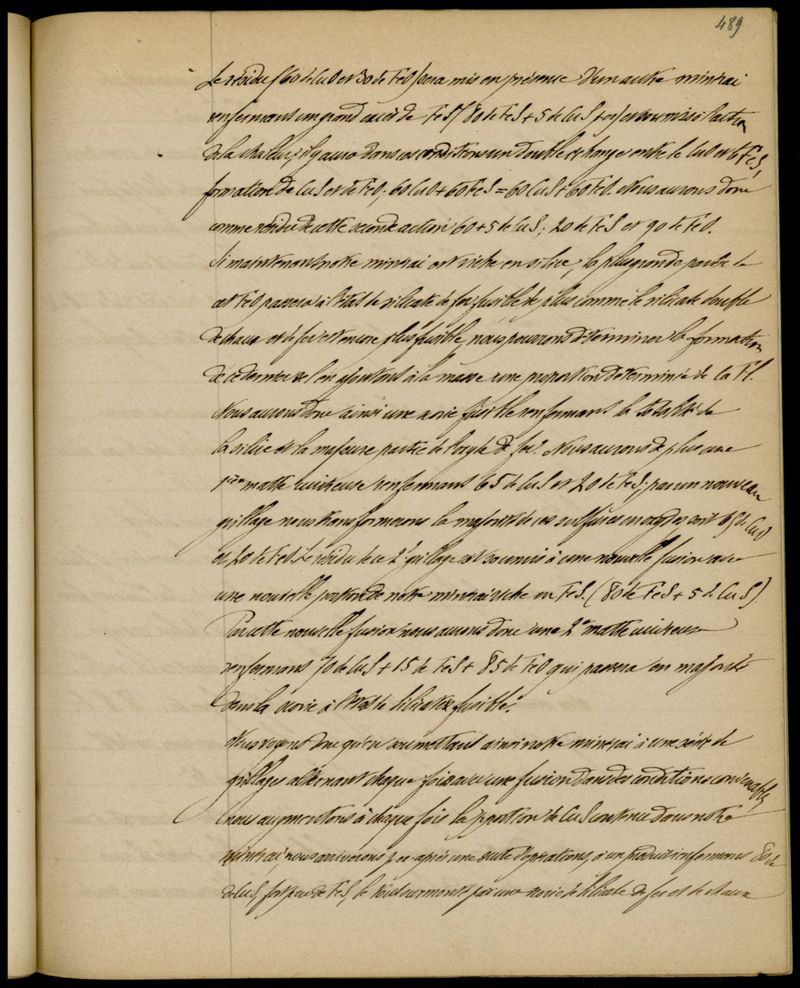 489
Le résidu (60 de CuO et 30 de FeO) sera mis en présence d'un autre minerai
renfermant un grand excès de FeS (80 de FeS + 5 de CuS) et soumis à l'action
de la chaleur; il y aura dans ces conditions un double échange entre le CuO et le FeS,
formation de CuS et de FeO, 60 CuO + 60 FeS = 60 CuS + 60 FeO. Nous aurons donc
comme résidu de cette seconde action 60+5 de CuS; 20 de FeS et 90 de FeO.
Si maintenant notre minerai est riche en silice, la plus grande partie de
cet FeO passera à l'état de silicate de fer fusible, de plus comme le silicate double
de chaux et de fer est encore plus fusible, nous pourrons déterminer la formation
de ce dernier sel en ajoutant à la masse une proportion déterminée de CaFl.
Nous aurons donc ainsi une scorie fusible renfermant la totalité de
la silice et la majeure partie de l'oxyde de fer. Nous aurons de plus une
1ère matte cuivreuse renfermant 65 de CuS et 20 de FeS; par un nouveau
grillage nous transformerons la majorité de ces sulfures en oxydes, soit 65 de CuO
et 20 de FeO. Le résidu de ce 2e grillage est soumis à une nouvelle fusion avec
une nouvelle portion de notre minerai riche en FeS. (80 de FeS + 5 de CuS)
Par cette nouvelle fusion nous aurons donc une 2e matte cuivreuse
renfermant 70 de CuS + 15 de FeS + 85 de FeO qui passera en majorité
dans la scorie à l'état de silicates fusible.
Nous voyons donc qu'en soumettant ainsi notre minerai à une série de
grillages alternant chaque fois avec une fusion dans des conditions convenables
nous augmentons à chaque fois la proportion de CuS contenue dans notre
minerai; nous arriverons après une suite d'opérations à un produit renfermant 80 de
de CuS, fort peu de FeS, le tout surmonté par une scorie de silicate de fer et de chaux